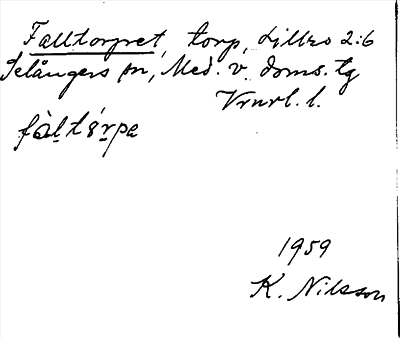 Falltorpet, torp, Lillbo 2:6
Selångers sn, Med. v. doms. tg
Vrnrl. l.
fàltórpe
1959
K. Nilsson